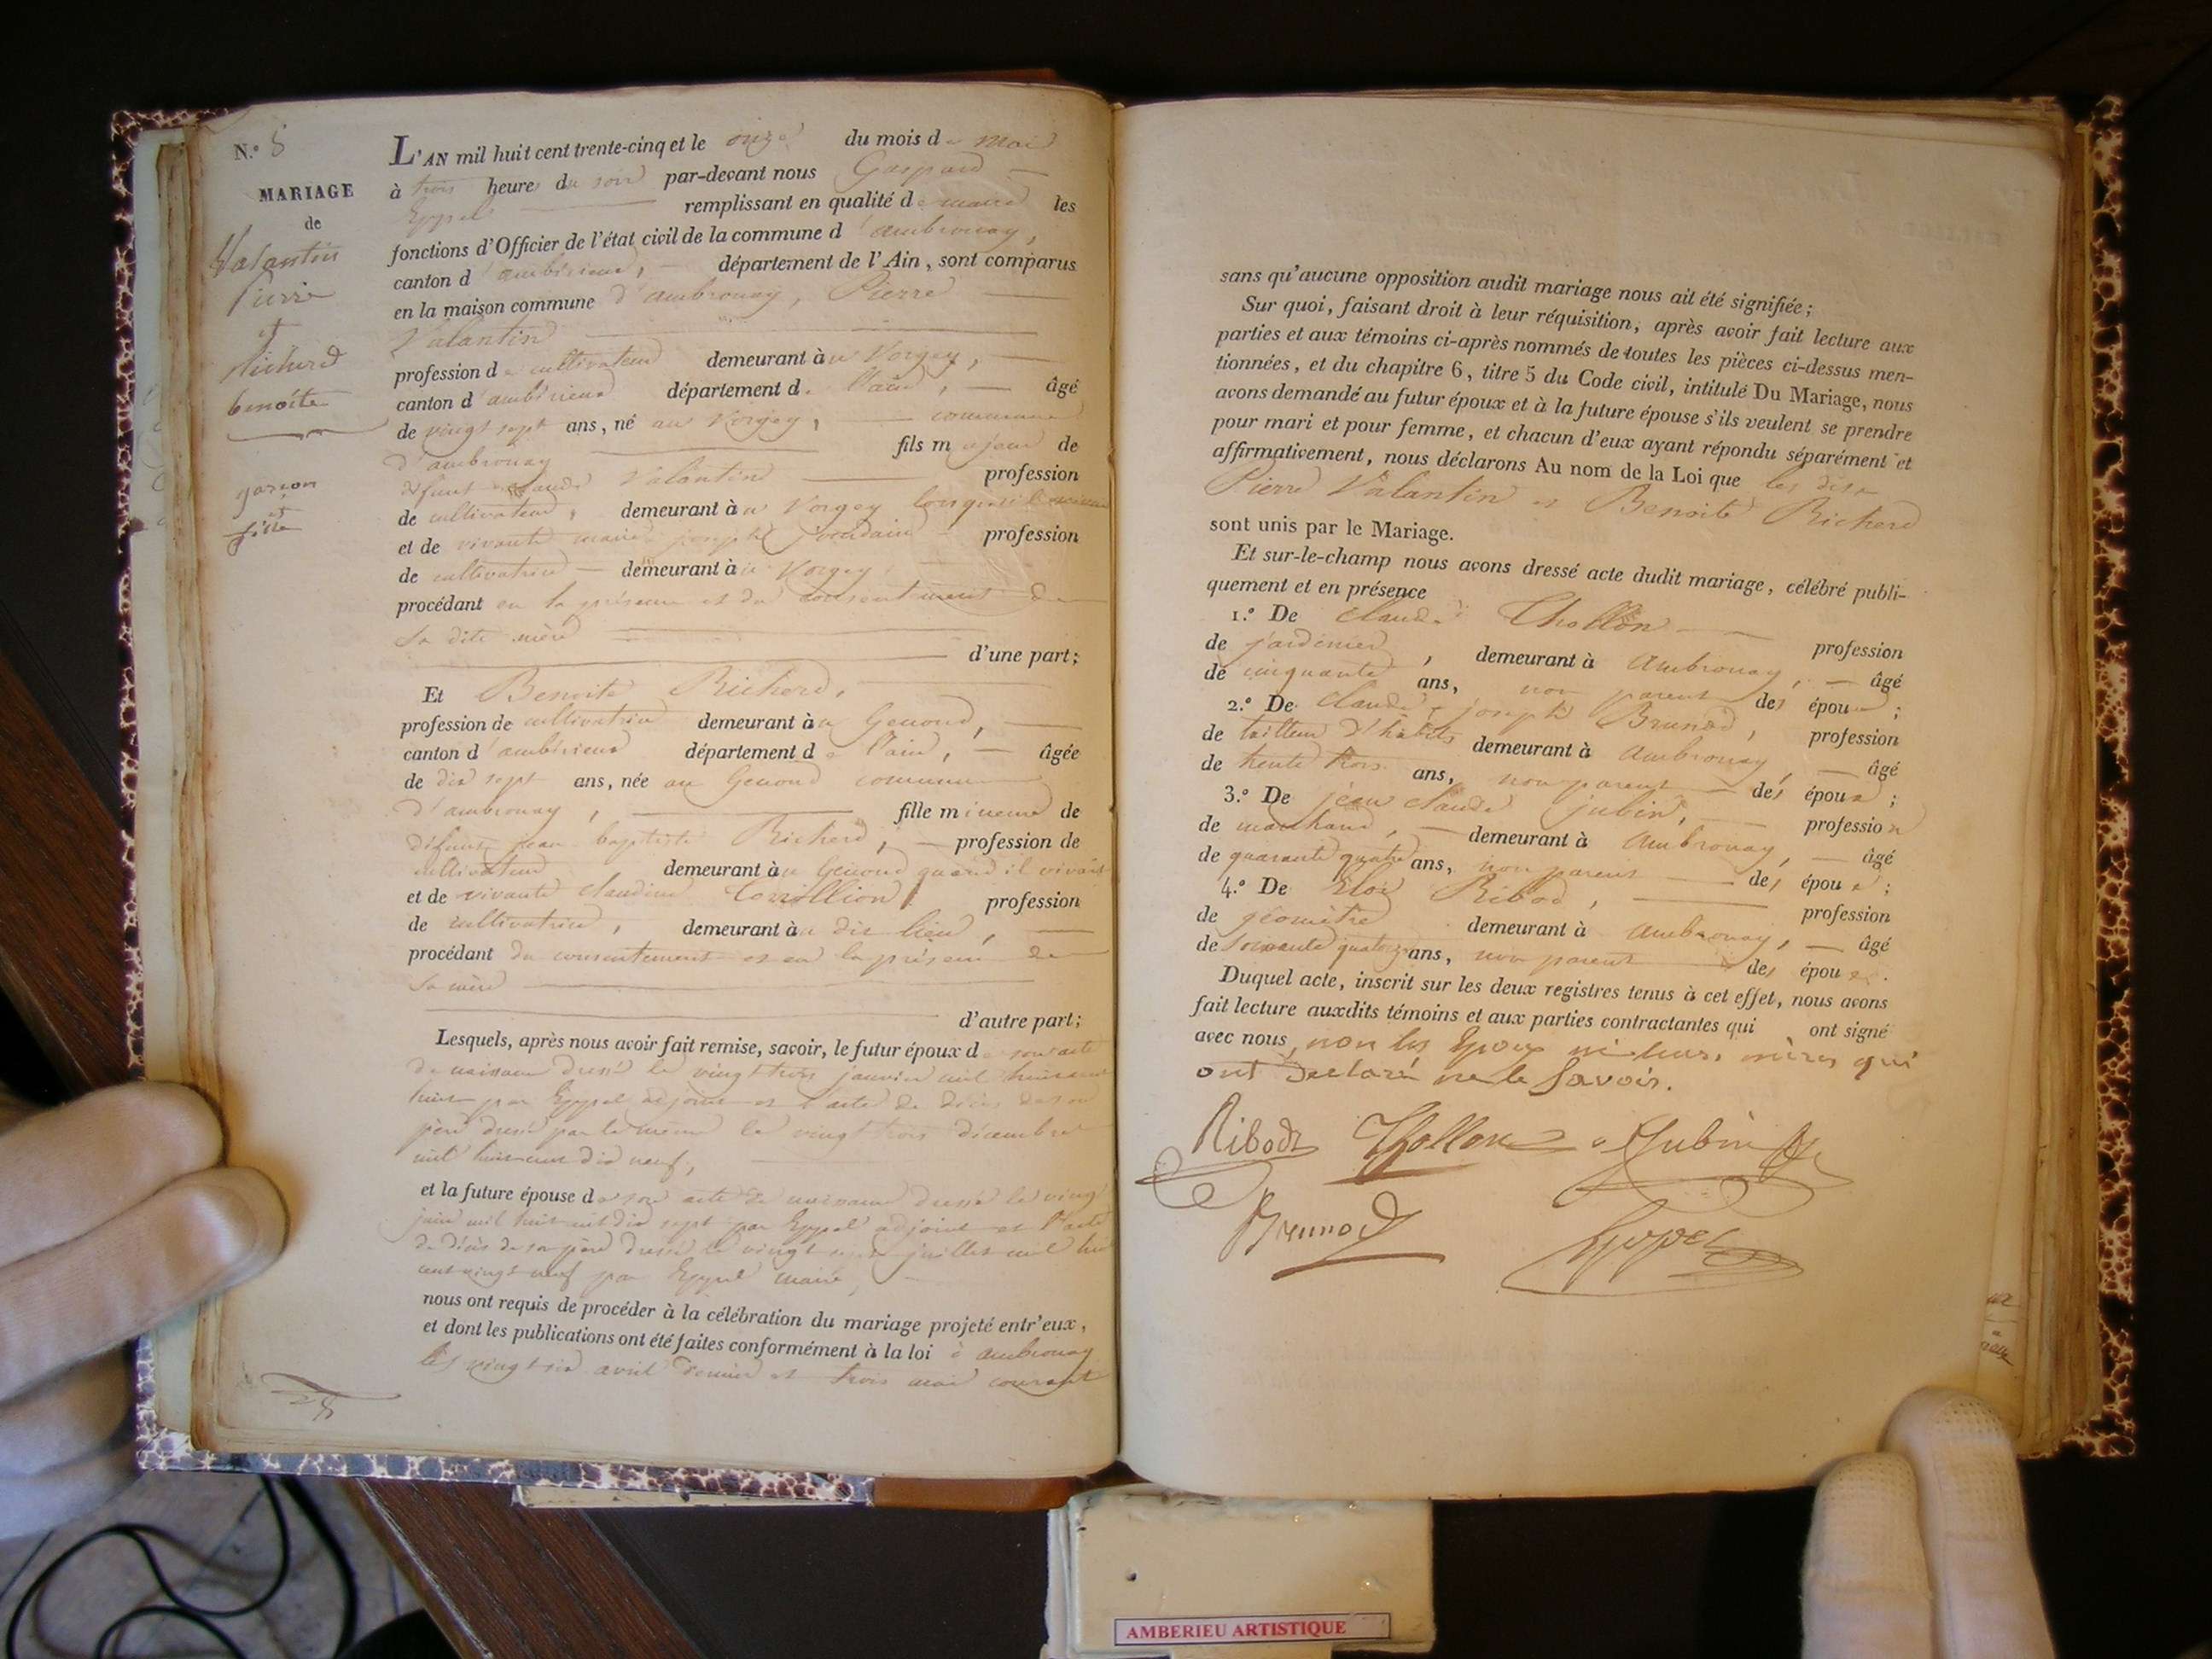 N.° 8
MARIAGE
de
Valantin
Pierre
et
Richerd
benoite
garçon
et
fille
L'AN mil huit cent trente-cinq et le onze du mois de mai
à trois heures du soir par-devant nous Gaspard
Eppel remplissant en qualité de maire les
fonctions d'Officier de l'état civil de la commune d'ambronay,
canton d'ambérieux, département de l'Ain, sont comparus
en la maison commune d'ambronay, Pierre
Valantin
profession de cultivateur demeurant au Vorgey,
canton d'ambérieux département de l'ain, âgé
de vingt sept ans, né au Vorgey, commune
d'ambronay fils majeur de
défunt claude Valantin profession
de cultivateur, demeurant au Vorgey lorsqu'il
et de vivante marie joseph profession
de cultivatrice demeurant au Vorgey
procédant en la présence et du consentement de
sa dite mère
d'une part;
Et Benoite Richerd,
profession de cultivatrice demeurant au Genoud,
canton d'ambérieux département de l'ain, âgée
de dix sept ans, née au Genoud commune
d'ambronay, fille mineure de
défunt jean baptiste Richerd, profession de
cultivateur demeurant au Genoud quand il vivait
et de vivante claudine profession
de cultivatrice, demeurant au dit lieu,
procédant du consentement et en la présence de
sa mère
d'autre part;
Lesquels, après nous avoir fait remise, savoir, le futur époux de son acte
de naissance dressé le vingt trois janvier mil huit cent
huit par Eppel adjoint et l'acte de décès de son
père dressé par le même le vingt trois décembre
mil huit cent dix neuf,
et la future épouse de son acte de naissance dressé le vingt
juin mil huit cent dix sept par Eppel adjoint et l'acte
de décès de son père dressé le vingt sept juillet mil huit
cent vingt neuf par Eppel maire,
nous ont requis de procéder à la célébration du mariage projeté entr'eux,
et dont les publications ont été faites conformément à la loi à ambronay
les vingt six avril dernier et trois mai courant
sans qu'aucune opposition audit mariage nous ait été signifiée;
Sur quoi, faisant droit à leur réquisition, après avoir fait lecture aux
parties et aux témoins ci-après nommés de toutes les pièces ci-dessus men-
tionnées, et du chapitre 6, titre 5 du Code civil, intitulé Du Mariage, nous
avons demandé au futur époux et à la future épouse s'ils veulent se prendre
pour mari et pour femme, et chacun d'eux ayant répondu séparément et
affirmativement, nous déclarons Au nom de la Loi que les dits
Pierre Valantin et Benoite Richerd
sont unis par le Mariage.
Et sur-le-champ nous avons dressé acte dudit mariage, célébré publi-
quement et en présence
1.° De Claude Chollon profession
de jardinier, demeurant à Ambronay, âgé
de cinquante ans, non parent des époux;
2.° De Claude joseph Brunod, profession
de tailleur d'habits demeurant à Ambronay, âgé
de trente trois ans, non parent des époux;
3.° De jean claude jubin, profession
de marchand, demeurant à Ambronay, âgé
de quarante quatre ans, non parent des époux;
4.° De Eloi Ribod, profession
de géomètre demeurant à ambronay, âgé
de soixante quatorze ans, non parent des époux.
Duquel acte, inscrit sur les deux registres tenus à cet effet, nous avons
fait lecture auxdits témoins et aux parties contractantes qui ont signé
avec nous, non les époux ni leurs mères qui
ont déclaré ne le savoir.
Ribod Chollon Jubin
Brunod Eppel
AMBERIEU ARTISTIQUE